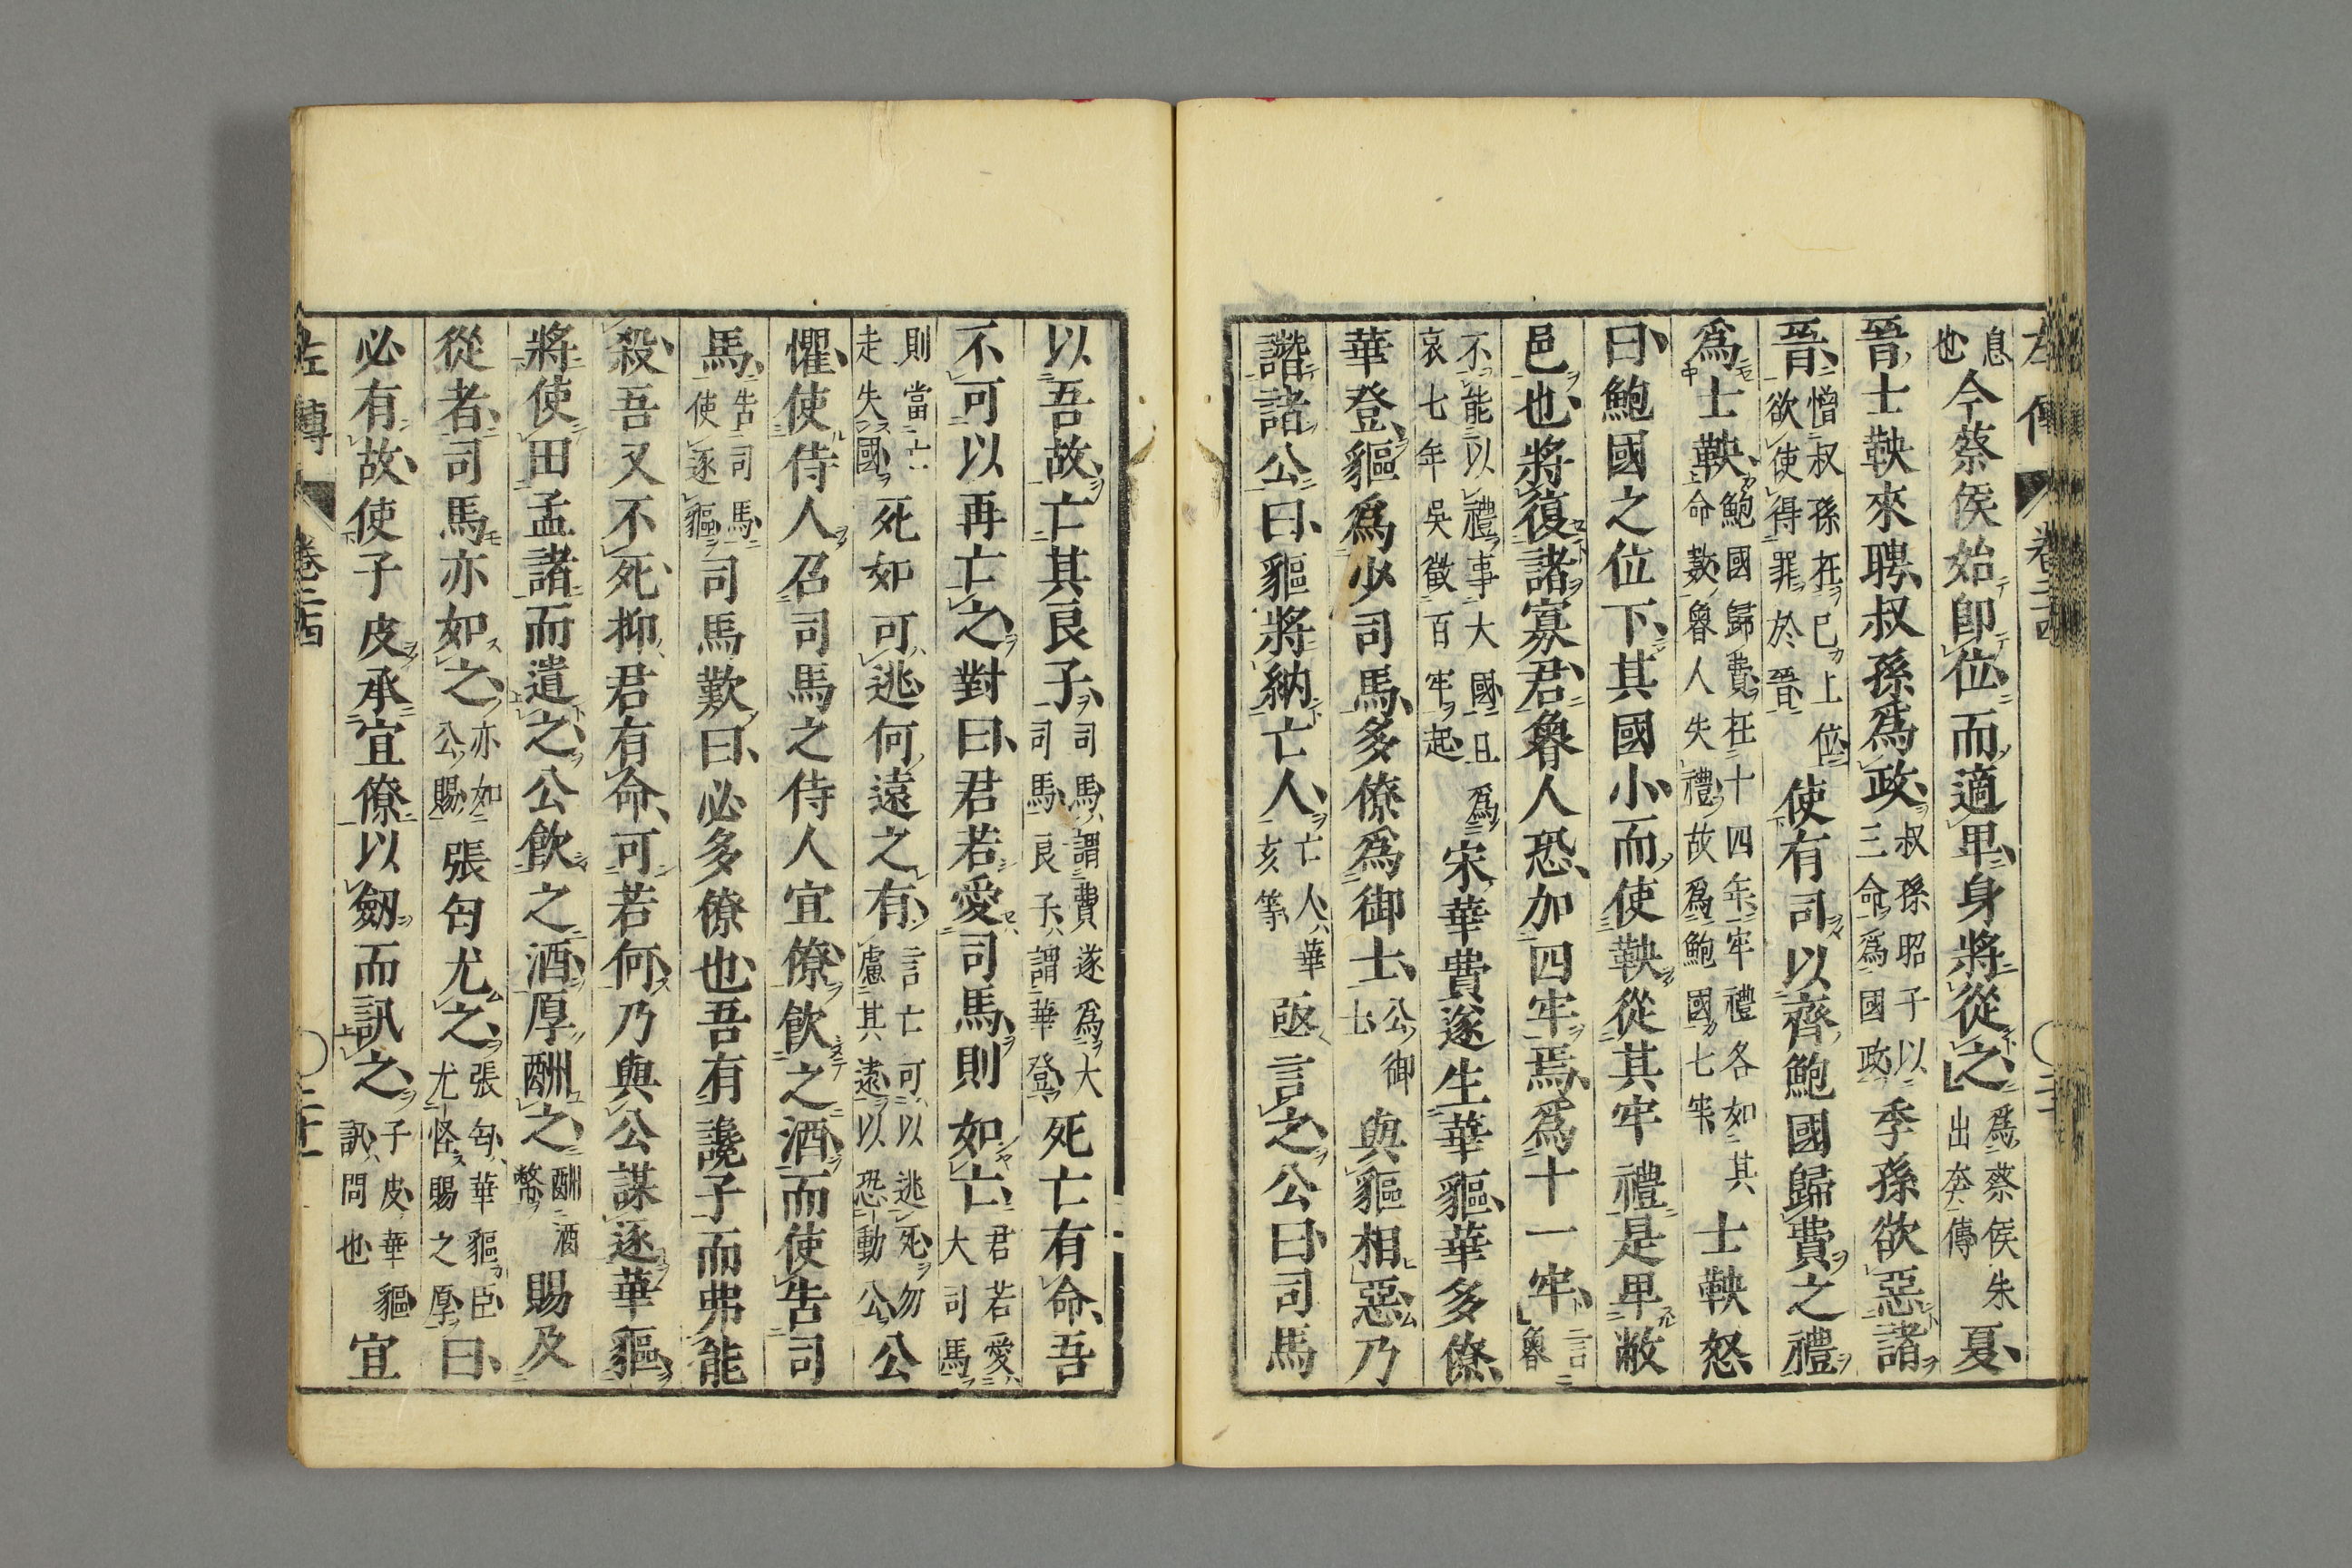 左傳 卷二十四
息也今蔡侯始卽位而適卑身將從之爲蔡侯朱出奔傳夏
晉士鞅來聘叔孫爲政叔孫昭子以三命爲國政季孫欲惡諸
晉憎叔孫在己上位欲使得罪於晉使有司以齊鮑國歸費之禮
爲士鞅鮑國歸費在十四年牢禮各如其命數魯人失禮故爲鮑國七牢士鞅怒
曰鮑國之位下其國小而使鞅從其牢禮是卑敝
邑也將復諸寡君魯人恐加四牢焉爲十一牢言魯
不能以禮事大國且爲哀七年吳徵百牢起宋華費遂生華貙華多僚
華登貙爲少司馬多僚爲御士公御士與貙相惡乃
譖諸公曰貙將納亡人亡人華亥等亟言之公曰司馬
以吾故亡其良子司馬謂費遂爲大司馬良子謂華登死亡有命吾
不可以再亡之對曰君若愛司馬則如亡君若愛大司馬
則當亡走失國死如可逃何遠之有言亡可以逃死勿慮其遠以恐動公公
懼使侍人召司馬之侍人宜僚飮之酒而使告司
馬告司馬使逐貙司馬歎曰必多僚也吾有讒子而弗能
殺吾又不死抑君有命可若何乃與公謀逐華貙
將使田孟諸而遣之公飮之酒厚酬之酬酒幣賜及
從者司馬亦如之亦如公賜張匄尤之張匄華貙臣尤怪賜之厚曰
必有故使子皮承宜僚以劒而訊之子皮華貙訊問也宜
左傳 卷二十四